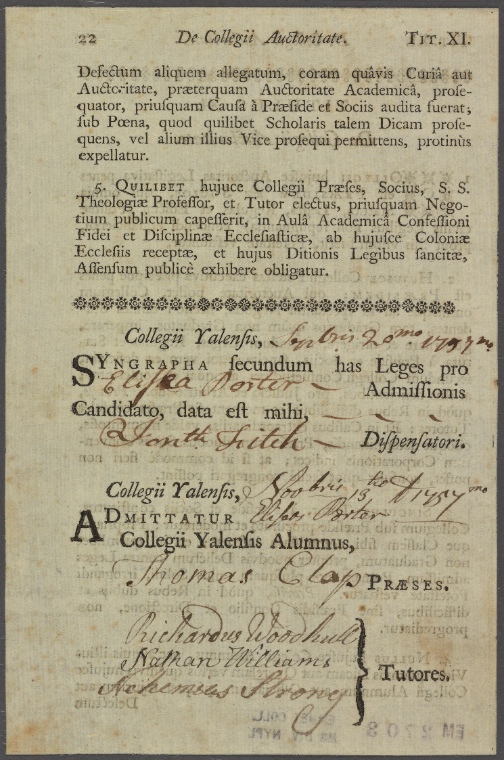 22 De Collegii Auctoritate. TIT. XI.
Defectum aliquem allegatum, coram quâvis Curiâ aut
Auctoritate, præterquam Auctoritate Academicâ, prose-
quator, priusquam Causa à Præside et Sociis audita fuerat;
sub Pœna, quod quilibet Scholaris talem Dicam prose-
quens, vel alium illius Vice prosequi permittens, protinùs
expellatur.
5. QUILIBET hujuce Collegii Præses, Socius, S. S.
Theologiæ Professor, et Tutor electus, priusquam Nego-
tium publicum capesserit, in Aulâ Academicâ Confessioni
Fidei et Disciplinæ Ecclesiasticæ, ab hujusce Coloniæ
Ecclesiis receptæ, et hujus Ditionis Legibus sancitæ,
Assensum publicè exhibere obligatur.
Collegii Yalensis, Sepbris 20mo 1757mo
SYNGRAPHA secundum has Leges pro
Elisea Porter Admissionis
Candidato, data est mihi,
Jonth Fitch Dispensatori.
Collegii Yalensis, Novbris 13 1757mo
ADMITTATUR Elisea Porter
Collegii Yalensis Alumnus,
Thomas Clap PRÆSES.
Richardus Woodhull
Nathan Williams
Nehemias Strong
Tutores.
EM 2703